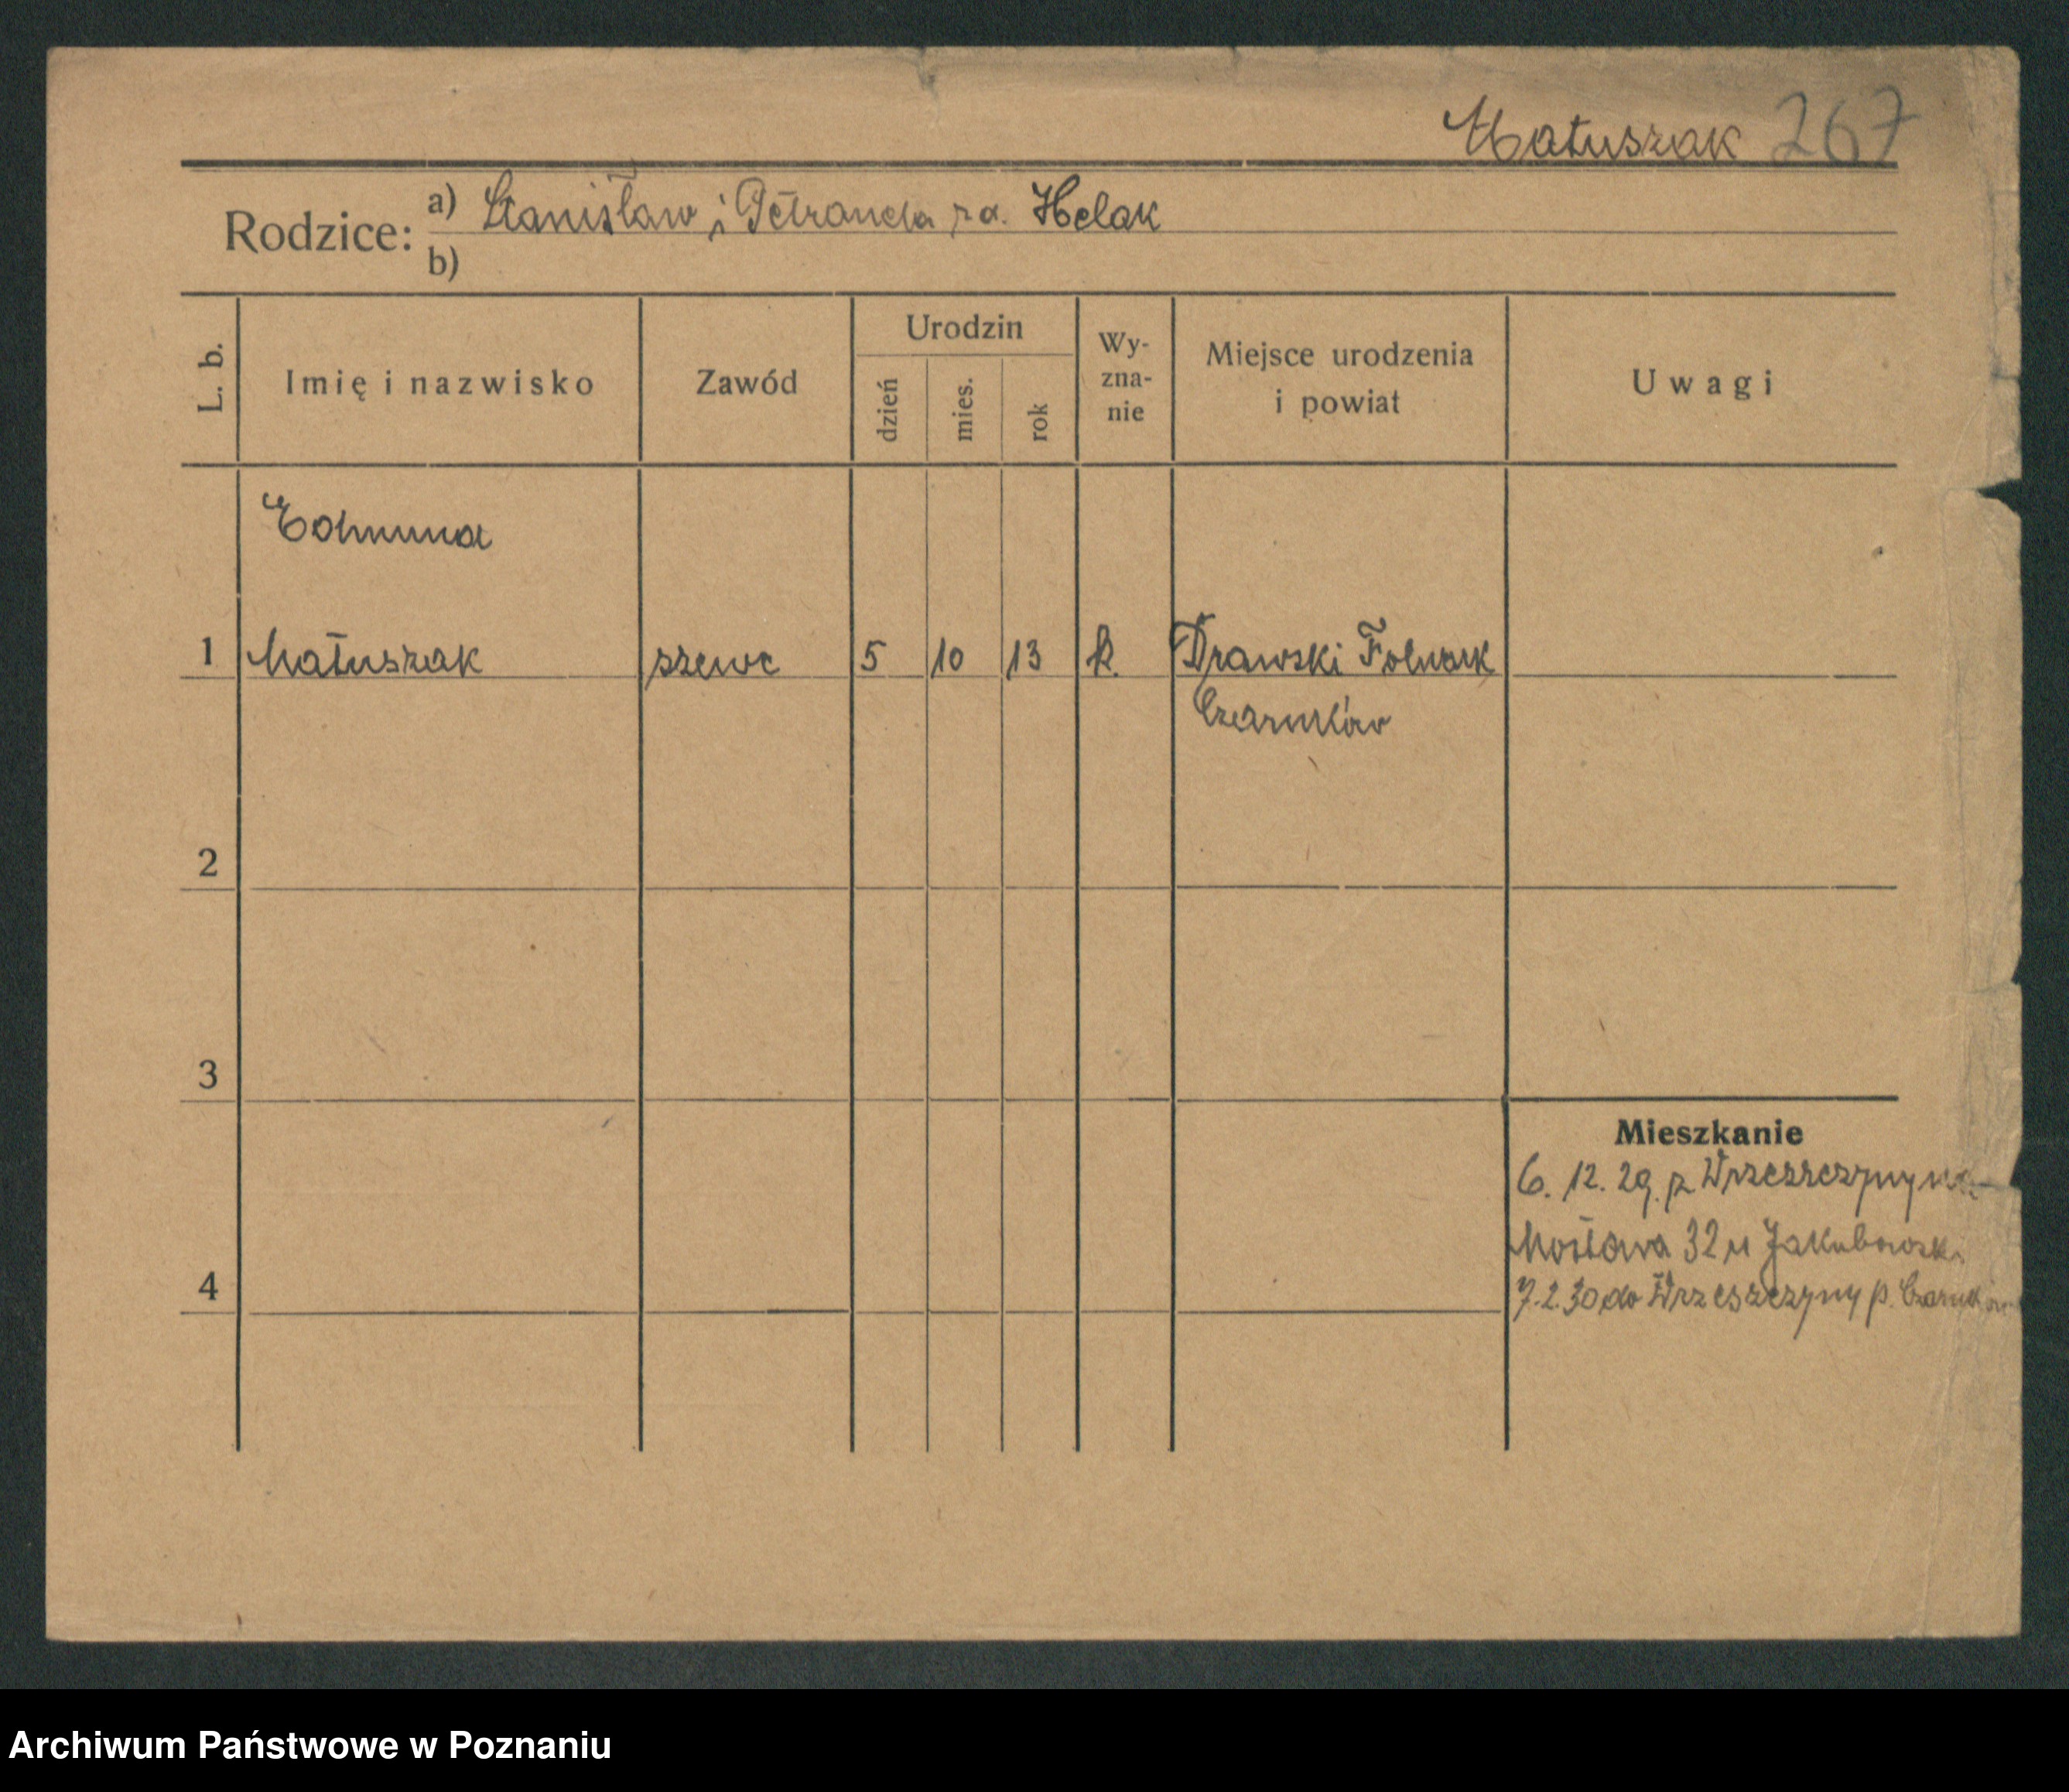 Matuszak 267
Rodzice: a) Stanisław i Petronela zd. Helak
b)
L. b. Imię i nazwisko Zawód Urodzin dzień mies. rok Wy-zna-nie Miejsce urodzenia i powiat Uwagi
Edmund
1 Matuszak szewc 5 10 13 k. Drawski Folwark
Czarnków
2
3
Mieszkanie
6. 12. 29. z Wrzeszczyny
Mostowa 32 u Jakubowsk
4
7.2.30 do Wrzeszczyny p. Czarnków
Archiwum Państwowe w Poznaniu